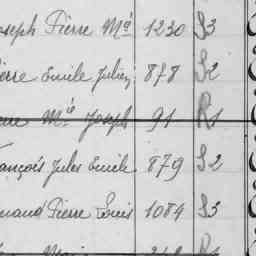 oseph Pierre Mê 1230 S3
ierre Emile Julien 878 S2
erre Mê Joseph 91 R1
rançois Jules Emile 879 S2
rnand Pierre Louis 1084 S3